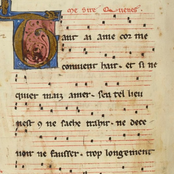 ant ai ame com me
conuient hair. et si ne
quier maiz amer. sen tel lieu
nest o ne sache trahir. ne dece
uoir ne fausser. trop longement